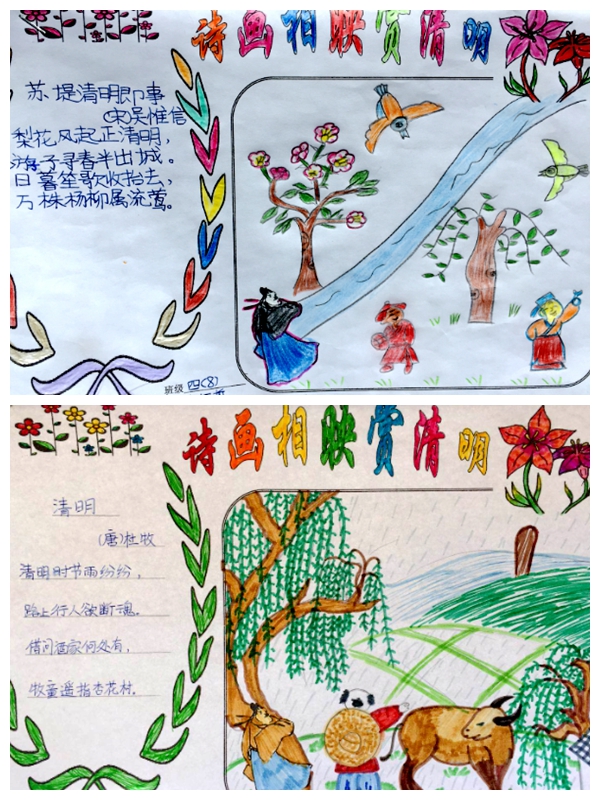 诗画相映赏清明
苏堤清明即事
(宋)吴惟信
梨花风起正清明，
游子寻春半出城。
日暮笙歌收拾去，
万株杨柳属流莺。
班级 四(8)
诗画相映赏清明
清明
(唐)杜牧
清明时节雨纷纷，
路上行人欲断魂。
借问酒家何处有，
牧童遥指杏花村。